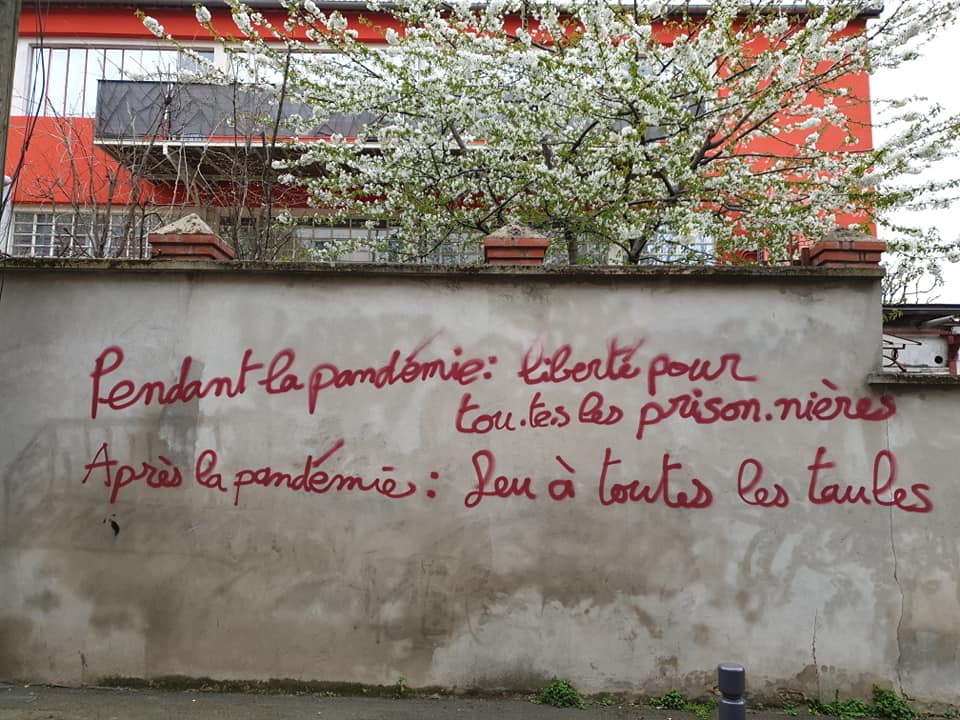 Pendant la pandémie: liberté pour
tou.te.s les prison.nières
Après la pandémie: Feu à toutes les taules